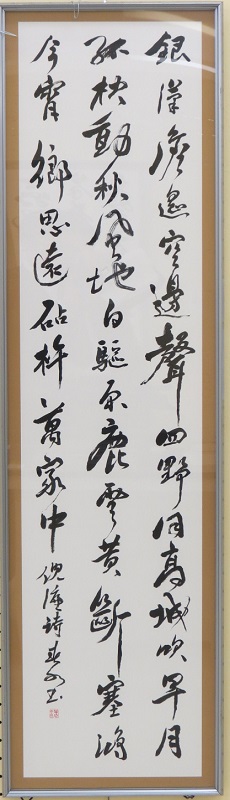 銀漢澹遙空邊聲四野同高城吹早月
孤枕動秋風地白驅原鹿雲黃斷塞鴻
今宵鄉思遠砧杵萬家中 倪